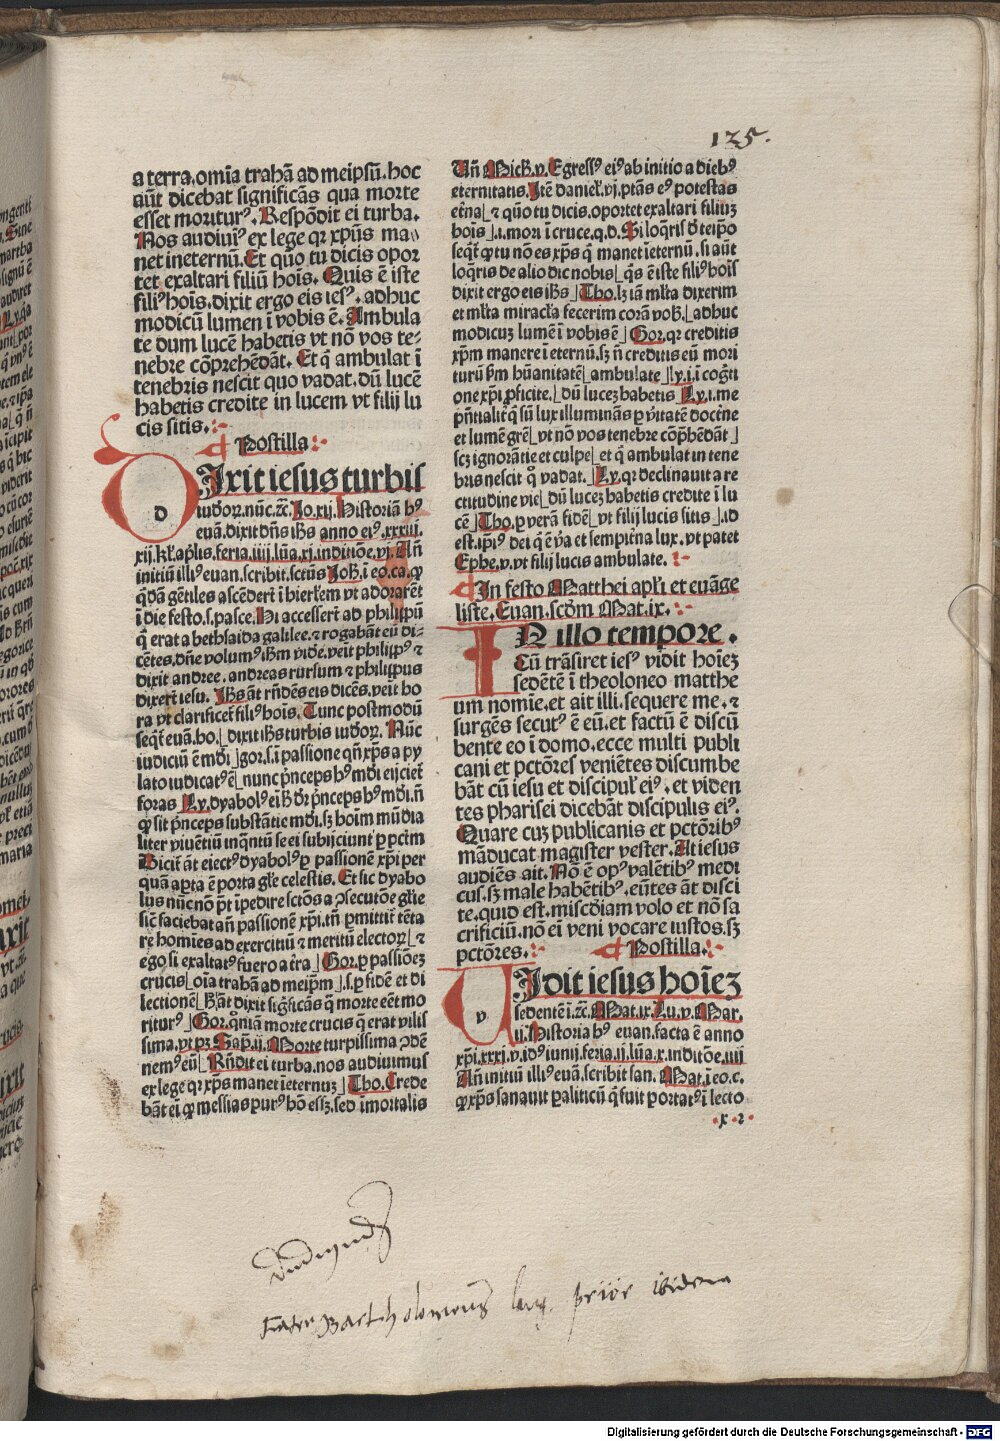 135.
a terra, omīa trahā ad meipsū. hoc
aūt dicebat significās qua morte
esset moriturꝰ. Respōdit ei turba.
Nos audiuiꝰ ex lege qꝛ xp̄us ma
net ineternū. Et quō tu dicis opor
tet exaltari filiū hoīs. Quis ē iste
filiꝰ hoīs. dixit ergo eis iesꝰ. adhuc
modicū lumen ī vobis ē. Ambula
te dum lucē habetis vt nō vos te-
nebre cōprehēdāt. Et q̄ ambulat ī
tenebris nescit quo vadat. dū lucē
habetis credite in lucem vt filij lu
cis sitis.
¶ Postilla
d Ixit iesus turbis
iudoꝝ. nūc. ꝛc̄. Jo. xij. Historiā hꝰ
euā. dixit dn̄s ih̄s anno eiꝰ. xxxiij.
xij. kl̄. ap̄lis. feria. iiij. lūa. xj. inditiōe. vj. Añ
initiū illiꝰ euan. scribit. sctūs Joh̄. ī eo. ca. ꝙ
q̄dā gētiles ascēdert ī hierl̄em vt adorarēt
ī die festo. s. pasce. Hi accessert ad philippū
q̄ erat a bethsaida galilee. ⁊ rogabāt eū di-
cētes. dn̄e volumꝰ ih̄m vidē. veīt philippꝰ ⁊
dixit andree. andreas rursum ⁊ philippus
dixert iesu. Ih̄s āt rn̄dēs eis dicēs. veīt ho
ra vt clarificet̄ filiꝰ hoīs. Tunc postmodū
seqt̄ euā. ho. ⌋ dixit ih̄s turbis iudoꝝ. Nūc
iudiciū ē mdī ⌋ gor. s. ī passione qn̄ xp̄s a py
lato iudicatꝰ ē ⌋ nunc pn̄ceps hꝰ mdī eijciet̄
foras ⌋ Ly. dyabolꝰ eī h̄ dr̄ pn̄ceps hꝰ mdī. n̄
ꝙ sit pn̄ceps substātie mdī. sꝫ hoīm mūdia
liter viuētiū inqn̄tū se ei subijciunt ꝑ pctm̄
Dicit̄ āt eiectꝰ dyabolꝰ ꝑ passionē xp̄i per
quā aꝑta ē porta gl̄e celestis. Et sic dyabo
lus nūc nō pt̄ īpedire sctōs a ꝯsecutōe gl̄ie
sic̄ faciebat an̄ passionē xp̄i. tn̄ ꝑmittit̄ tēta
re homīes ad exercitiū ⁊ meritū electoꝝ ⌋ ⁊
ego si exaltatꝰ fuero a tr̄a ⌋ Gor. ꝑ passiōeꝫ
crucis ⌋ oīa trahā ad meipm̄ ⌋ .s. ꝑ fidē et di
lectionē ⌋ h̄ āt dixit sigficās q̄ morte eēt mo
riturꝰ ⌋ Gor. qm̄ iā morte crucis q̄ erat vilis
sima. vt pꝫ Sap̄. ij. Morte turpissima ꝯdē
nemꝰ eū ⌋ Rn̄dit ei turba. nos audiuimus
ex lege qꝛ xp̄s manet ieternuꝫ ⌋ Tho. Crede
bāt eī ꝙ messias purꝰ hō essꝫ. sed īmortalis
Vn̄ Mich̄. v. Egressꝰ eiꝰ ab initio a diebꝰ
eternitatis. Itē daniel̄. vij. ptās eꝰ potestas
et̄na ⌋ ⁊ quō tu dicis. oportet exaltari filiuꝫ
hoīs ⌋ .i. mori ī cruce. q. d. Si loqr̄is d̄ teīpo
seqt̄ ꝙ tu nō es xp̄s q̄ manet īeternū. si aūt
loqr̄is de alio dic nobis ⌋ q̄s ē iste filiꝰ hoīs
dixit ergo eis ih̄s ⌋ Tho. lꝫ iā ml̄ta dixerim
et ml̄ta miracl̄a fecerim corā vob̄. ⌋ adhuc
modicuꝫ lumē ī vobis ē ⌋ Gor. qꝛ creditis
xp̄m manere ī eternū. sꝫ n̄ creditis eū mori
turū ẜm hūanitatē ⌋ ambulate ⌋ ly. i. ī cogīti
one xp̄i ꝓficite. ⌋ dū luceꝫ habetis ⌋ Ly. i. me
pn̄tialit̄ q̄ sū lux illuminās ꝑ v̄itatē doctrīe
et lumē grē ⌋ vt nō vos tenebre cōphēdāt ⌋
scꝫ ignorātie et culpe ⌋ et q̄ ambulat in tene
bris nescit q̄ vadat. ⌋ Ly. qꝛ declinauit a re
ctitudine vie ⌋ dū luceꝫ habetis credite ī lu
cē ⌋ Tho. ꝑ verā fidē ⌋ vt filij lucis sitis ⌋ .id
est. ip̄iꝰ dei q̄ ē v̄a et sempit̄na lux. vt patet
Ephe. v. vt filij lucis ambulate.
¶ In festo Matthei apl̄i et euāge
liste. Euan. scd̄m Mat. ix.
IN illo tempore.
Cū trāsiret iesꝰ vidit hoīeꝫ
sedētē ī theloneo matthe
um nomīe. et ait illi. sequere me. ⁊
surgēs secutꝰ ē eū. et factū ē discū
bente eo ī domo. ecce multi publi
cani et pctōres veniētes discumbe
bāt cū iesu et discipul̄ eiꝰ. et viden
tes pharisei dicebāt discipulis eiꝰ.
Quare cuꝫ publicanis et pctōribꝰ
māducat magister vester. At iesus
audiēs ait. Nō ē opꝰ valētibꝰ medi
cus. sꝫ male habētibꝰ. eūtes āt disci
te. quid est. miscd̄iam volo et nō sa
crificiū. nō eī veni vocare iustos. sꝫ
pctōres. ¶ Postilla.
v Idit iesus hoīeꝫ
sedentē ī. ꝛc̄. Mat. ix. Lu. v. Mar.
ij. Historia hꝰ euan. facta ē anno
xp̄i. xxxi. v. idꝰ iunij. feria. ij. lūa. x. inditōe. iiij
Añ initiū illiꝰ euā. scribit san. Mat. ī eo. c.
ꝙ xp̄s sanauit ꝑaliticū q̄ fuit portatꝰ ī lecto
x 2
frater Bartholomeus prior ibidem
Digitalisierung gefördert durch die Deutsche Forschungsgemeinschaft - DFG